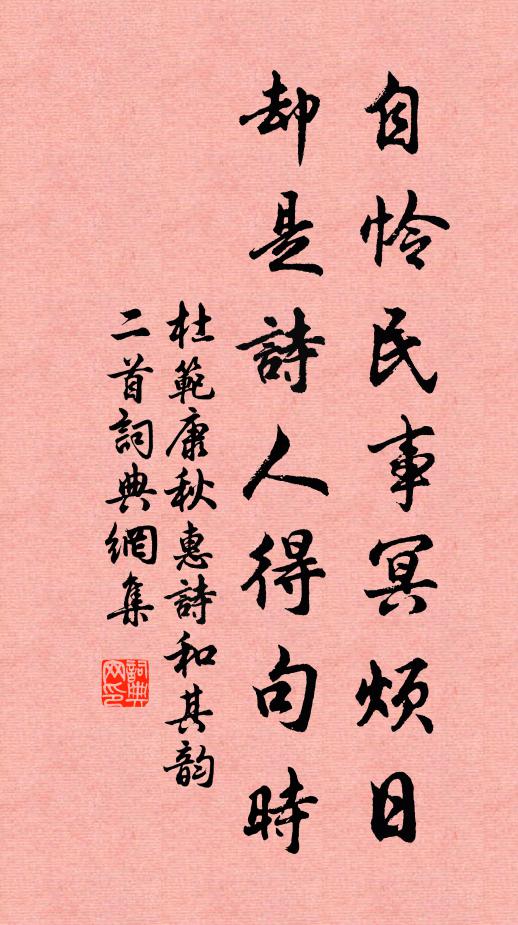 自怜民事冥烦日
却是詩人得句時
杜範康秋惠詩和其韵
二首詞典網集
詞典网印